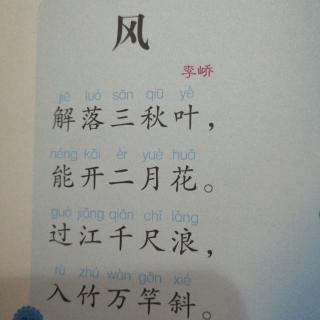 风
李峤
jiě luò sān qiū yè
解落三秋叶，
néng kāi èr yuè huā
能开二月花。
guò jiāng qiān chǐ làng
过江千尺浪，
rù zhú wàn gān xié
入竹万竿斜。